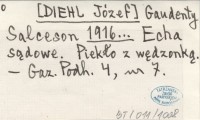 [DIEHL Józef] Gaudenty
Salceson 1916... Echa
sądowe. Piekło z wędzonką.
– Gaz. Podh. 4, nr 7.